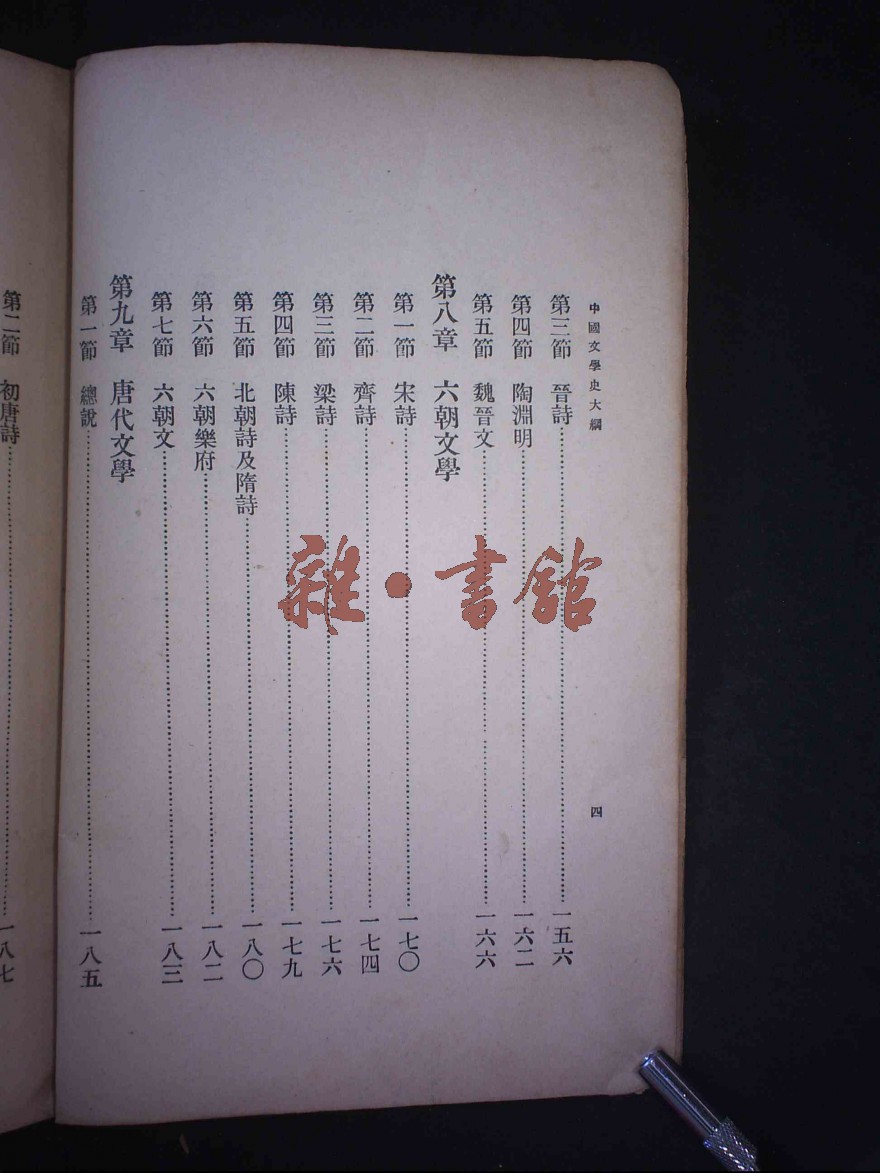 中國文學史大綱
四
第三節 晉詩……一五六
第四節 陶淵明……一六二
第五節 魏晉文……一六六
第八章 六朝文學
第一節 宋詩……一七〇
第二節 齊詩……一七四
第三節 梁詩……一七六
第四節 陳詩……一七九
第五節 北朝詩及隋詩……一八〇
第六節 六朝樂府……一八二
第七節 六朝文……一八三
第九章 唐代文學
第一節 總說……一八五
第二節 初唐詩……一八七
雜·書館